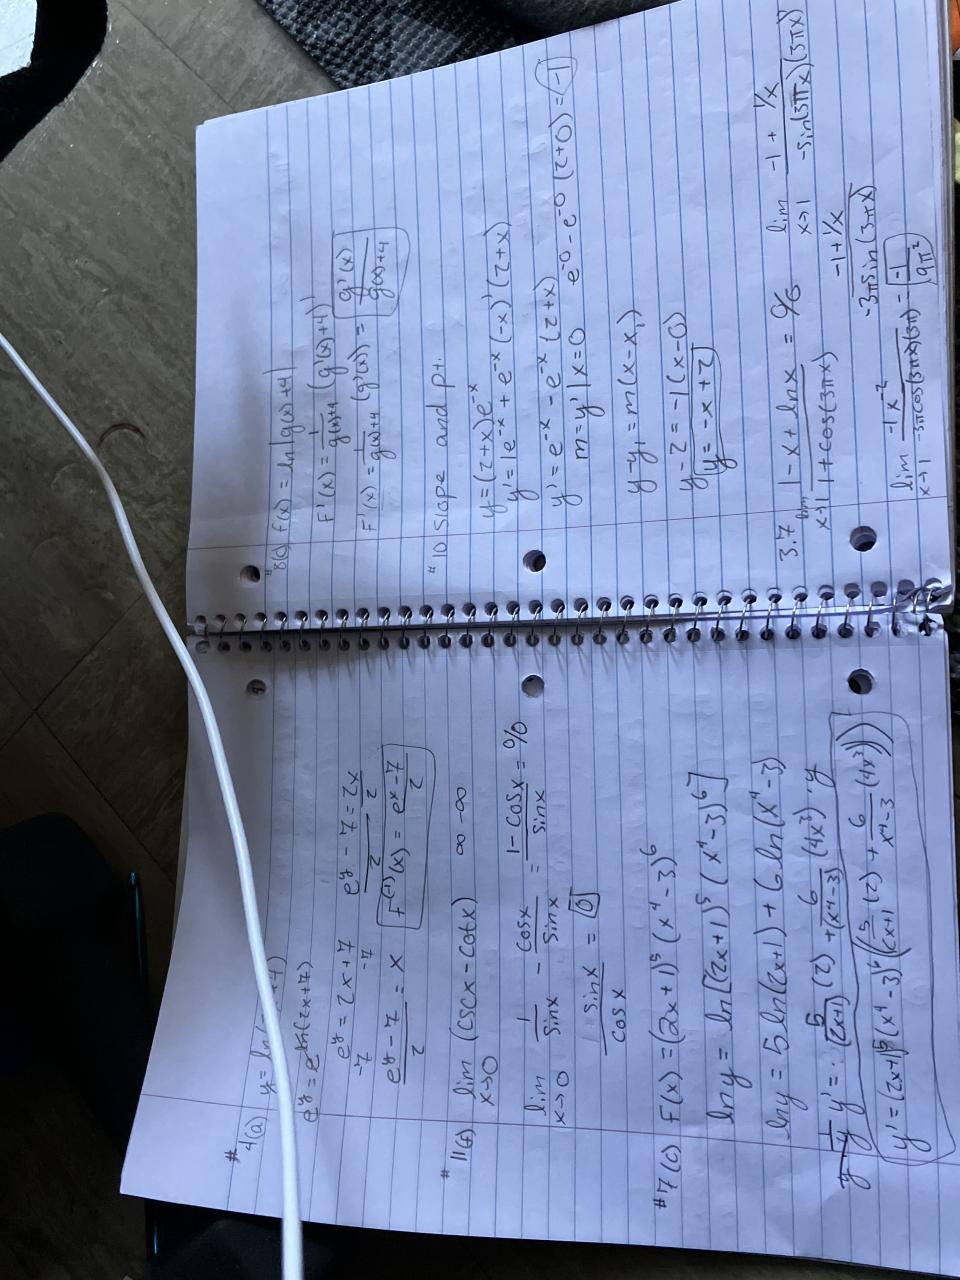 # 4(a) y = ln(
e^y = e^ln(2x+7)
e^y = 2x+7
-7 -7
e^y - 7 = x
2
e^y - 7 = 2x
2 2
f^(-1)(x) = e^x - 7
2
# 11(f) lim (cscx - cotx) ∞ - ∞
x→0
lim 1/sinx - cosx/sinx = 1 - cosx/sinx = 0/0
x→0
sinx/cosx = 0
#7(c) f(x) = (2x+1)^5 (x^4-3)^6
ln y = ln[(2x+1)^5 (x^4-3)^6]
ln y = 5 ln(2x+1) + 6 ln(x^4-3)
y · 1/y y' = · 5/(2x+1) (2) + 6/(x^4-3) (4x^3) · y
y' = (2x+1)^5 (x^4-3)^6 (5/2x+1 (2) + 6/x^4-3 (4x^3))
# 8(c) f(x) = ln|g(x)+4|
F'(x) = 1/g(x)+4 (g'(x)+4')
F'(x) = 1/g(x)+4 (g'(x)) = g'(x)/g(x)+4
# 10 Slope and pt.
y = (2+x)e^-x
y' = 1e^-x + e^-x (-x)' (2+x)
y' = e^-x - e^-x (2+x)
m = y' | x=0 e^-0 - e^-0 (2+0) = -1
y - y₁ = m(x - x₁)
y - 2 = -1(x - 0)
y = -x + 2
3.7 lim 1 - x + ln x / 1 + cos(3πx) = 0/0 lim -1 + 1/x / -sin(3πx)(3πx)
x→1 x→1
-1 + 1/x
-3π sin(3πx)
lim -1x^-2 / -3π cos(3πx)(3π) = -1/9π^2
x→1